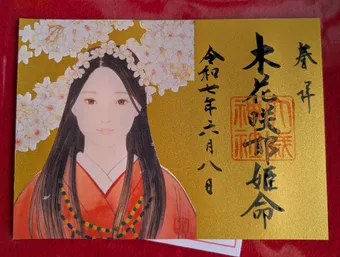 奉拝
木花咲耶姫命
令和七年六月八日